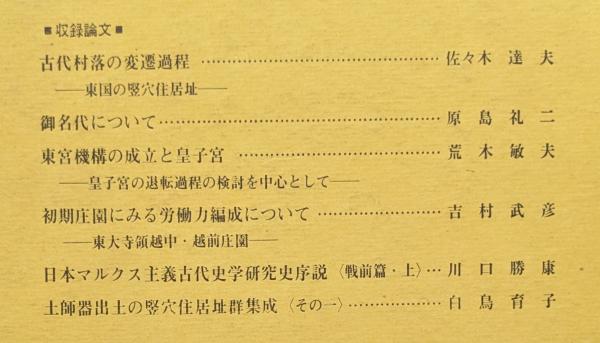 ■収録論文■
古代村落の変遷過程……………………………………佐々木 達 夫
――東国の竪穴住居址――
御名代について……………………………………原 島 礼 二
東宮機構の成立と皇子宮……………………………………荒 木 敏 夫
――皇子宮の退転過程の検討を中心として――
初期庄園にみる労働力編成について………………吉 村 武 彦
――東大寺領越中・越前庄園――
日本マルクス主義古代史学研究史序説〈戦前篇・上〉…川 口 勝 康
土師器出土の竪穴住居址群集成〈その一〉………………白 鳥 育 子